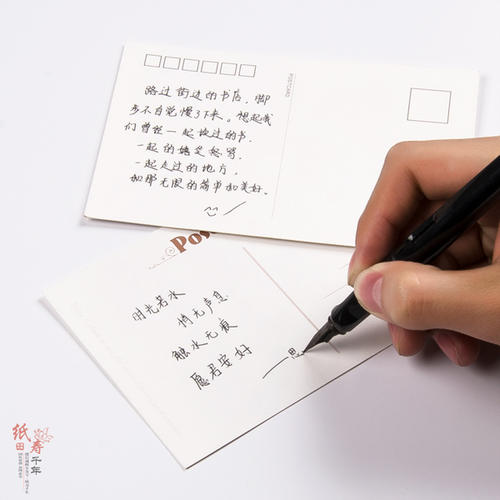 POSTCARD
路过街边的书店，脚
步不自觉慢了下来。想起我
们曾经一起读过的书.
一起的嬉笑怒骂.
一起走过的地方.
如那无限的简单和美好.
Pos
时光若水
悄无声息
触水无痕
愿君安好
纸田
寿千年